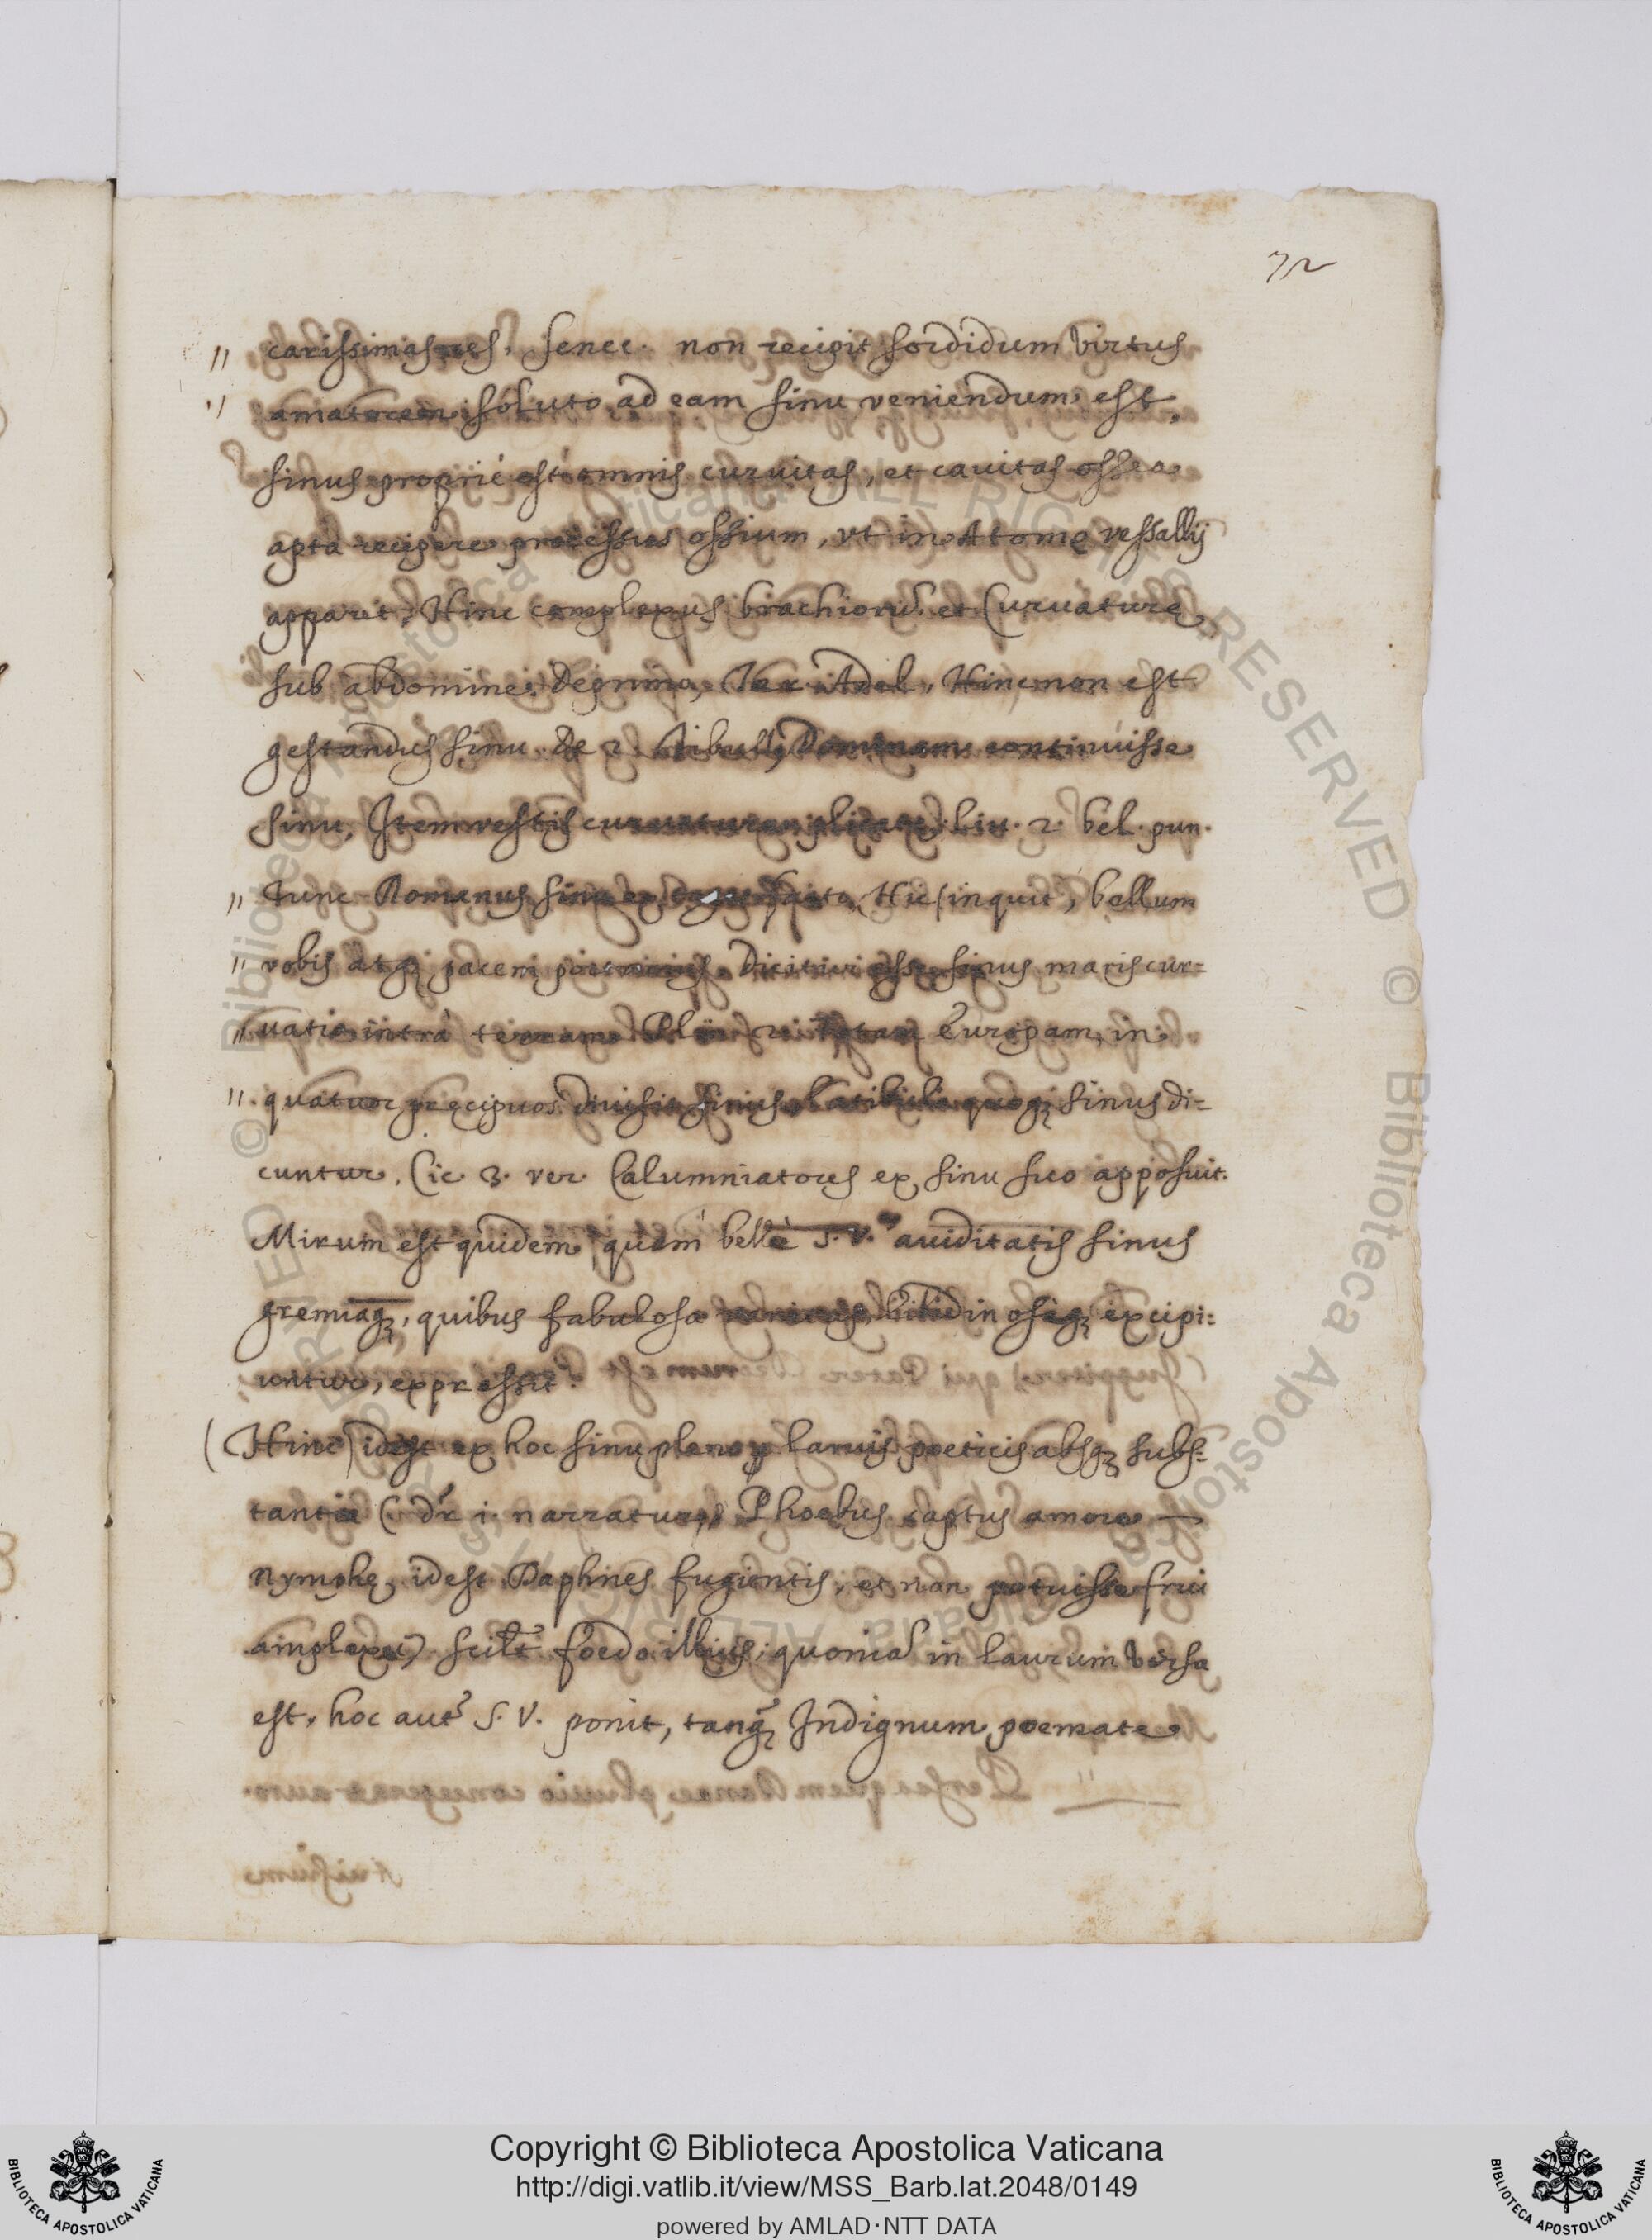 72
" carissimas res. Senec. non recipit sordidum virtus
" amatorem soluto ad eam sinu veniendum est,
sinus proprié est omnis curuitas, et cauitas ossea
apta recipere processus ossium, vt in Atomę vessallij
apparet, Hinc complexus brachiorũ et Curuaturę
sub abdomine, Ter. Adel. Hinc non est
gestandus sinu. & 2. Tibull, Dominam continuisse
sinu, Item vestis curuaturam, Liu. 2. bel. pun.
" Tunc Romanus sinu ex toga facto, Hic (inquit) bellum
" vobis atq; pacem portamus. Dicitur esse sinus maris cur=
" uatio intrà terram Plin 2. totam Europam, in
" quatuor pręcipuos diuisit sinus Latibula quoq; sinus di=
cuntur. Cic. 3. ver. Calumniatores ex sinu suo apposuit.
Mirum est quidem, quàm bellè S. V. auiditatis sinus
gremiaq;, quibus fabulosæ libidinosęq; excipi=
untur, expressit.
(Hinc) idest ex hoc sinu pleno laruis poeticis absq; subs=
tantia (dr̃ i. narratur, Phoebus captus amore —
nymphę, idest Daphnes fugientis, et non potuisse frui
amplexu) scilt̃ foedo illius, quoniã in laurum versa
est. hoc autẽ S. V. ponit, tanq̃; Indignum poemate
Copyright © Biblioteca Apostolica Vaticana
http://digi.vatlib.it/view/MSS_Barb.lat.2048/0149
powered by AMLAD·NTT DATA
BIBLIOTECA APOSTOLICA VATICANA
BIBLIOTECA APOSTOLICA VATICANA